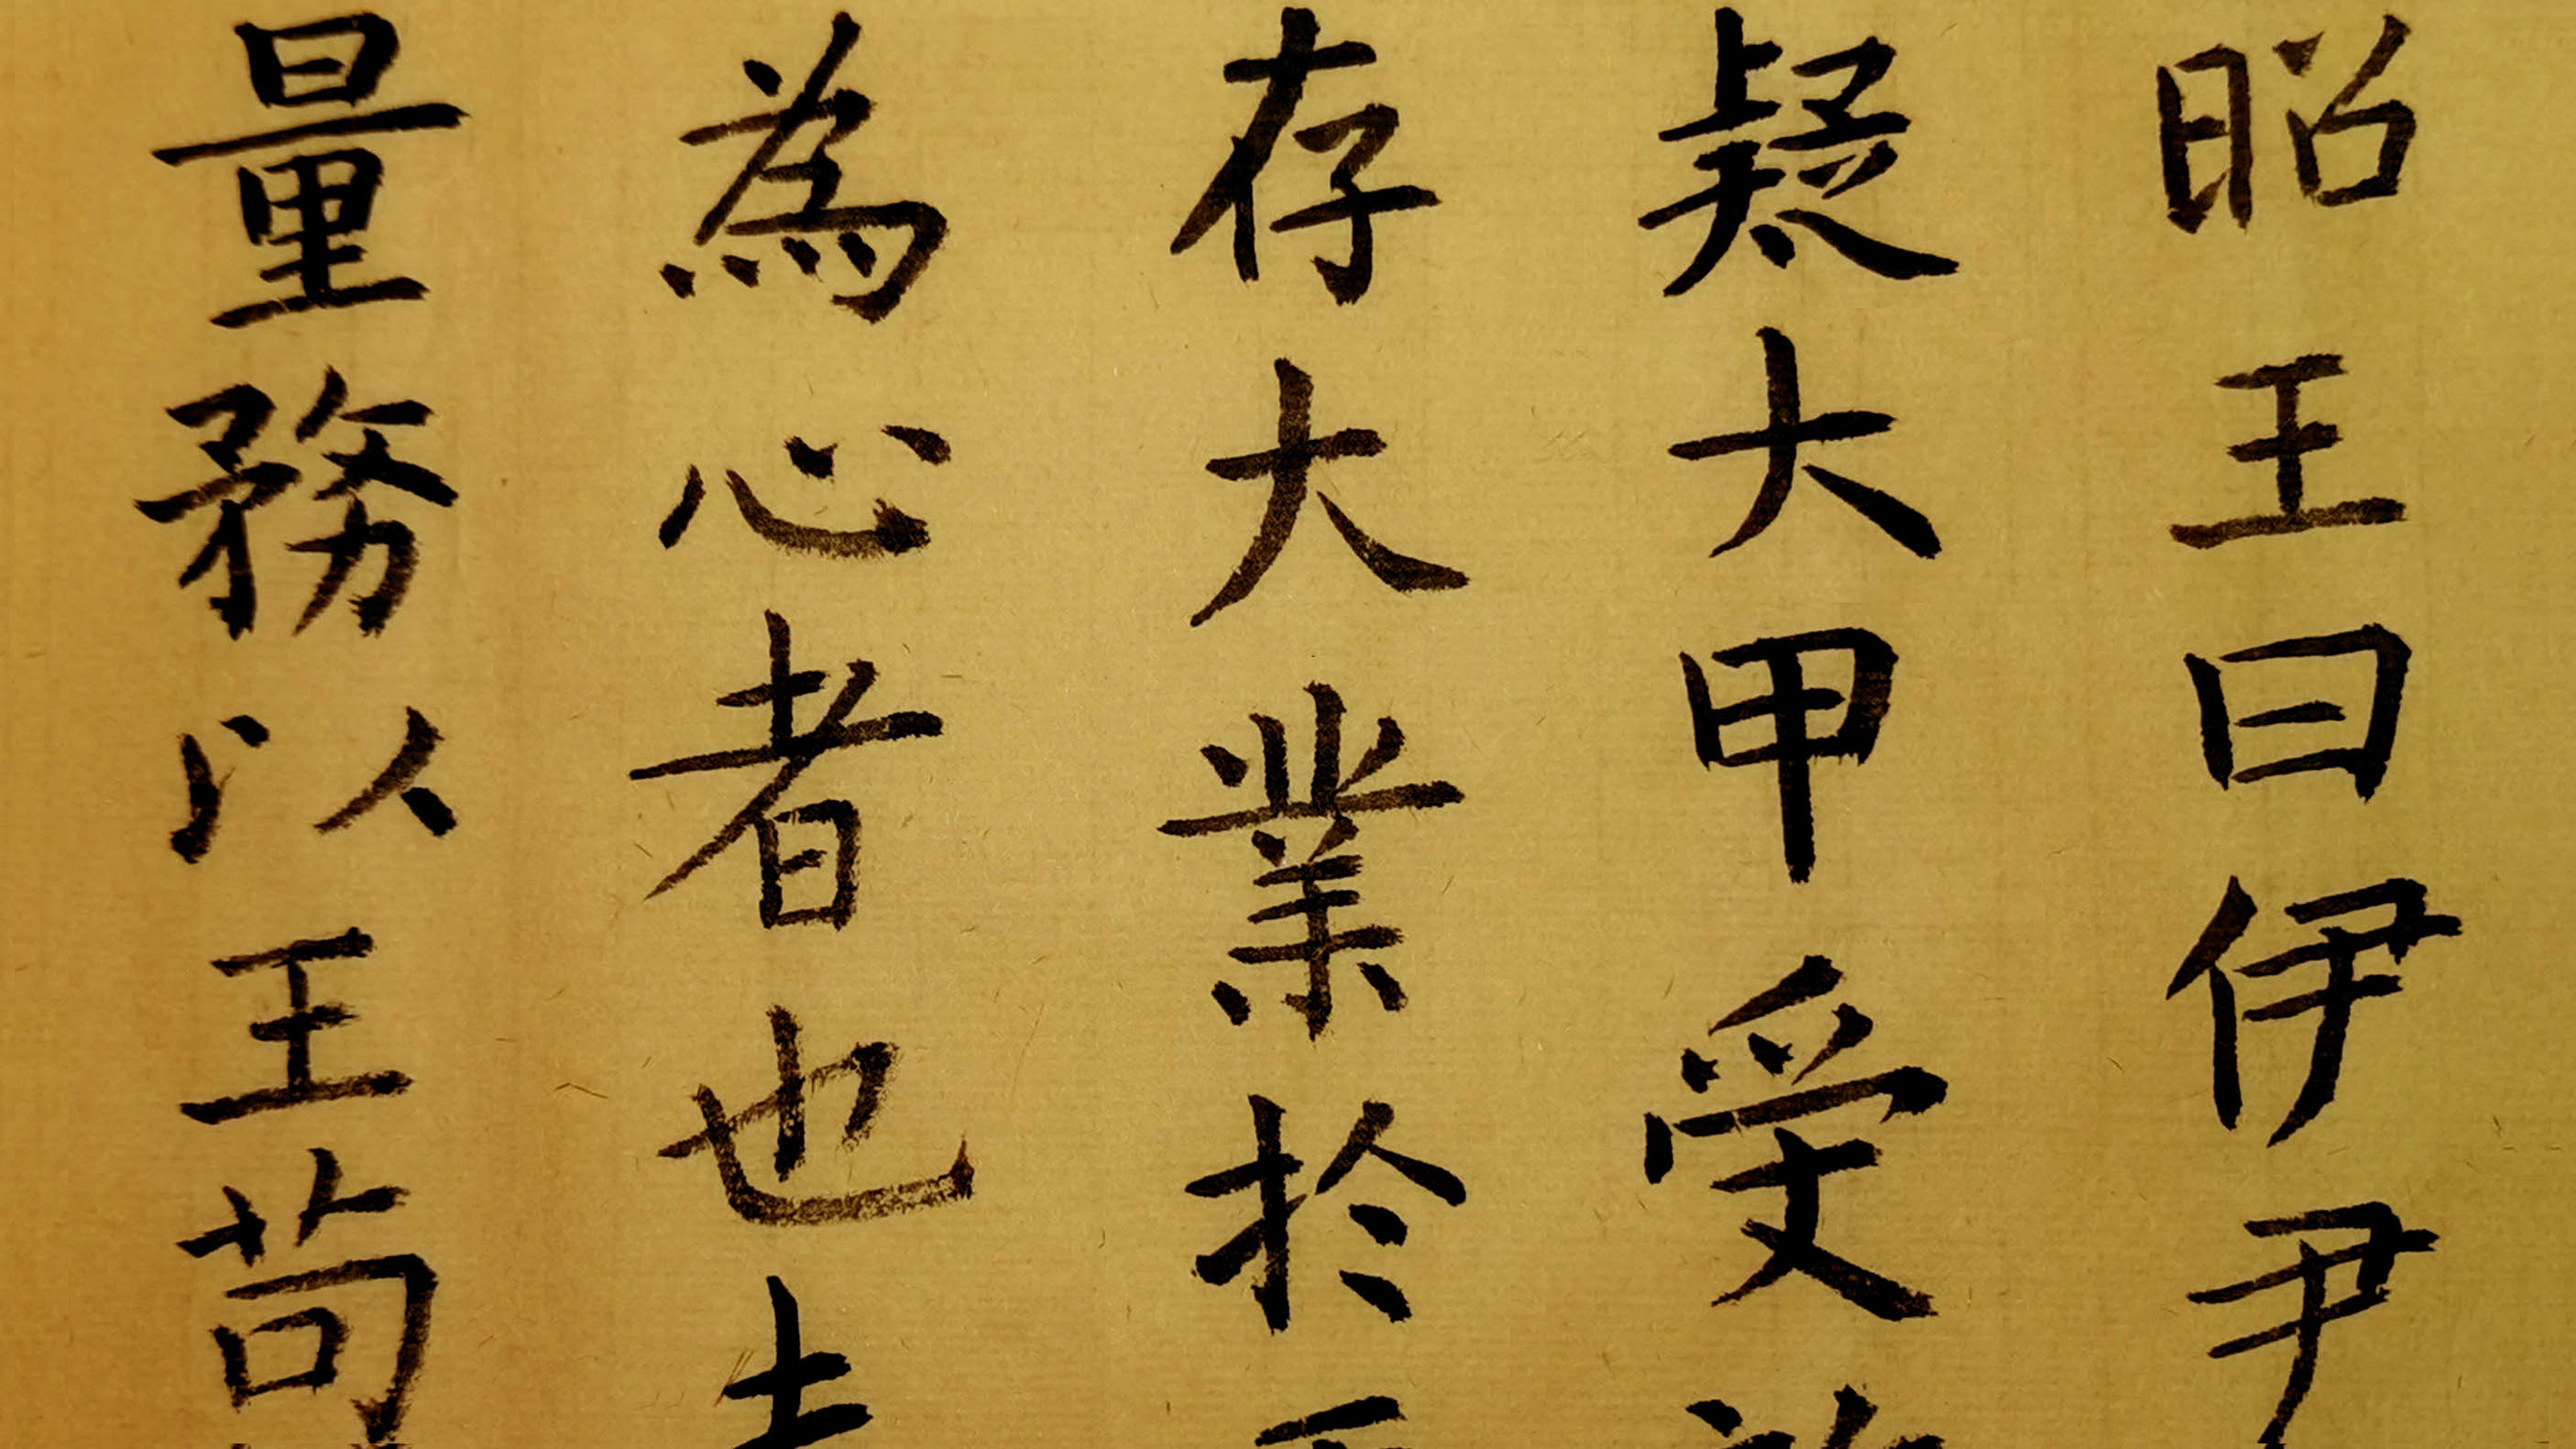 昭王曰伊尹
疑大甲受
存大業於至
為心者也
量務以王苟